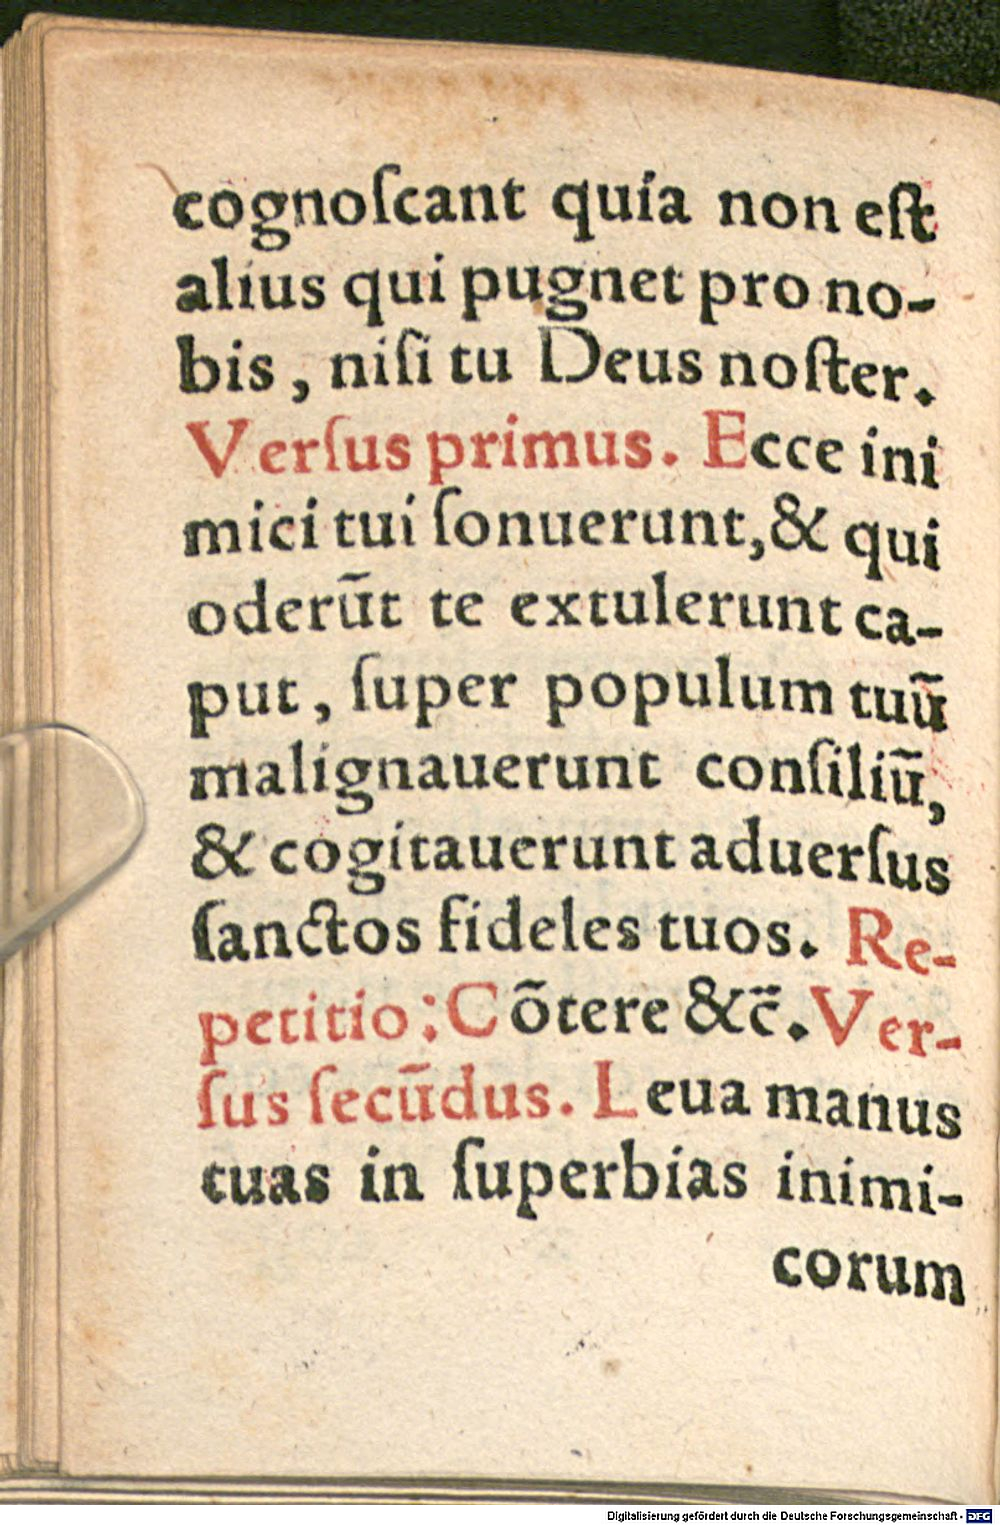 cognoſcant quia non eſt
alius qui pugnet pro no-
bis, niſi tu Deus noſter.
Verſus primus. Ecce ini
mici tui ſonuerunt, & qui
oderūt te extulerunt ca-
put, ſuper populum tuū
malignauerunt conſiliū,
& cogitauerunt aduerſus
ſanctos fideles tuos. Re-
petitio: Cōtere &c̄. Ver-
ſus ſecūdus. Leua manus
tuas in ſuperbias inimi-
corum
Digitalisierung gefördert durch die Deutsche Forschungsgemeinschaft - DFG